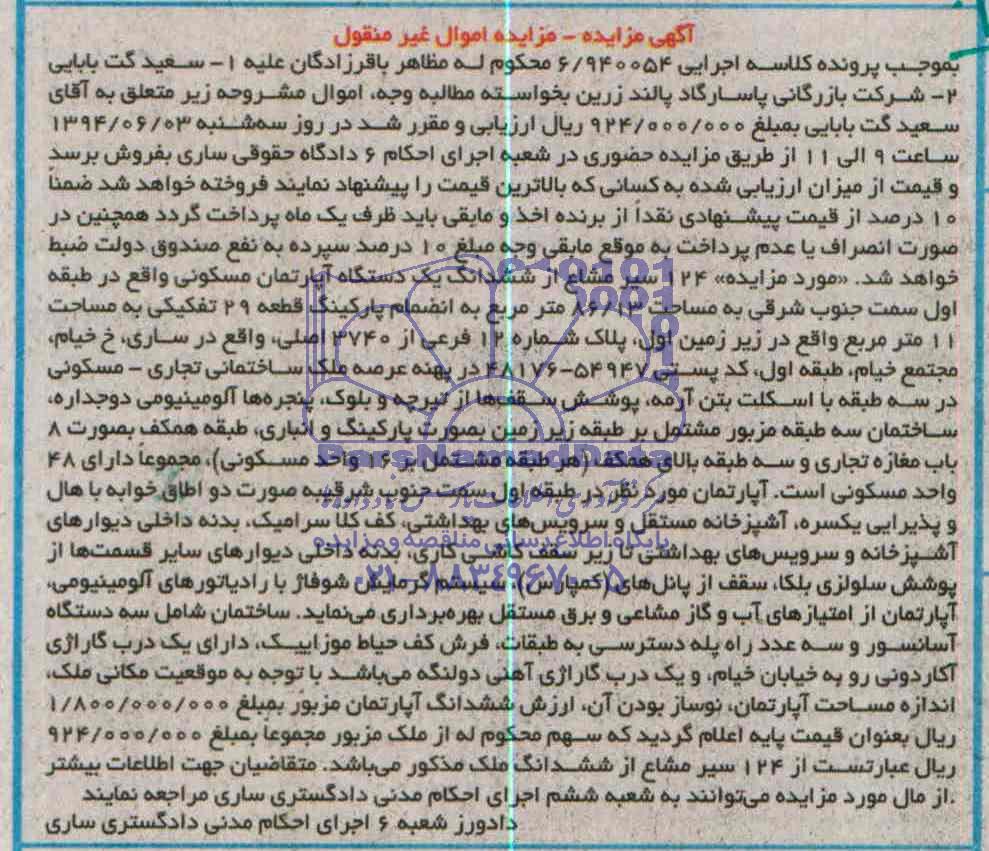 آگهی مزایده - مزایده اموال غیر منقول
بموجب پرونده کلاسه اجرایی ۶/۹۴۰۰۵۴ محکوم له مظاهر باقرزادگان علیه ۱- سعید گت بابایی
۲- شرکت بازرگانی پاسارگاد پالند زرین بخواسته مطالبه وجه، اموال مشروحه زیر متعلق به آقای
سعید گت بابایی بمبلغ ۹۲۴/۰۰۰/۰۰۰ ریال ارزیابی و مقرر شد در روز سه‌شنبه ۱۳۹۴/۰۶/۰۳
ساعت ۹ الی ۱۱ از طریق مزایده حضوری در شعبه اجرای احکام ۶ دادگاه حقوقی ساری بفروش برسد
و قیمت از میزان ارزیابی شده به کسانی که بالاترین قیمت را پیشنهاد نمایند فروخته خواهد شد ضمناً
۱۰ درصد از قیمت پیشنهادی نقداً از برنده اخذ و مابقی باید ظرف یک ماه پرداخت گردد همچنین در
صورت انصراف یا عدم پرداخت به موقع مابقی وجه مبلغ ۱۰ درصد سپرده به نفع صندوق دولت ضبط
خواهد شد. «مورد مزایده» ۱۲۴ سیر مشاع از ششدانگ یک دستگاه آپارتمان مسکونی واقع در طبقه
اول سمت جنوب شرقی به مساحت ۸۶/۱۳ متر مربع به انضمام پارکینگ قطعه ۲۹ تفکیکی به مساحت
۱۱ متر مربع واقع در زیر زمین اول، پلاک شماره ۱۲ فرعی از ۳۷۴۰ اصلی، واقع در ساری، خ خیام،
مجتمع خیام، طبقه اول، کد پستی ۵۴۹۴۷-۴۸۱۷۶ در پهنه عرصه ملک ساختمانی تجاری - مسکونی
در سه طبقه با اسکلت بتن آرمه، پوشش سقف‌ها از تیرچه و بلوک، پنجره‌ها آلومینیومی دوجداره،
ساختمان سه طبقه مزبور مشتمل بر طبقه زیر زمین بصورت پارکینگ و انباری، طبقه همکف بصورت ۸
باب مغازه تجاری و سه طبقه بالای همکف (هر طبقه مشتمل بر ۱۶ واحد مسکونی)، مجموعاً دارای ۴۸
واحد مسکونی است. آپارتمان مورد نظر در طبقه اول سمت جنوب شرقیبه صورت دو اطاق خوابه با هال
و پذیرایی یکسره، آشپزخانه مستقل و سرویس‌های بهداشتی، کف کلا سرامیک، بدنه داخلی دیوارهای
آشپزخانه و سرویس‌های بهداشتی تا زیر سقف کاشی کاری، بدنه داخلی دیوارهای سایر قسمت‌ها از
پوشش سلولزی بلکا، سقف از پانل‌های (کمپارس)، سیستم گرمایش شوفاژ با رادیاتورهای آلومینیومی،
آپارتمان از امتیازهای آب و گاز مشاعی و برق مستقل بهره‌برداری می‌نماید. ساختمان شامل سه دستگاه
آسانسور و سه عدد راه پله دسترسی به طبقات، فرش کف حیاط موزاییک، دارای یک درب گاراژی
آکاردونی رو به خیابان خیام، و یک درب گاراژی آهنی دولنگه می‌باشد با توجه به موقعیت مکانی ملک،
اندازه مساحت آپارتمان، نوساز بودن آن، ارزش ششدانگ آپارتمان مزبور بمبلغ ۱/۸۰۰/۰۰۰/۰۰۰
ریال بعنوان قیمت پایه اعلام گردید که سهم محکوم له از ملک مزبور مجموعاً بمبلغ ۹۲۴/۰۰۰/۰۰۰
ریال عبارتست از ۱۲۴ سیر مشاع از ششدانگ ملک مذکور می‌باشد. متقاضیان جهت اطلاعات بیشتر
.از مال مورد مزایده می‌توانند به شعبه ششم اجرای احکام مدنی دادگستری ساری مراجعه نمایند
دادورز شعبه ۶ اجرای احکام مدنی دادگستری ساری
ParsNamadData
پایگاه اطلاع رسانی مناقصه و مزایده
۰۲۱-۸۸۳۴۹۶۷۰-۵